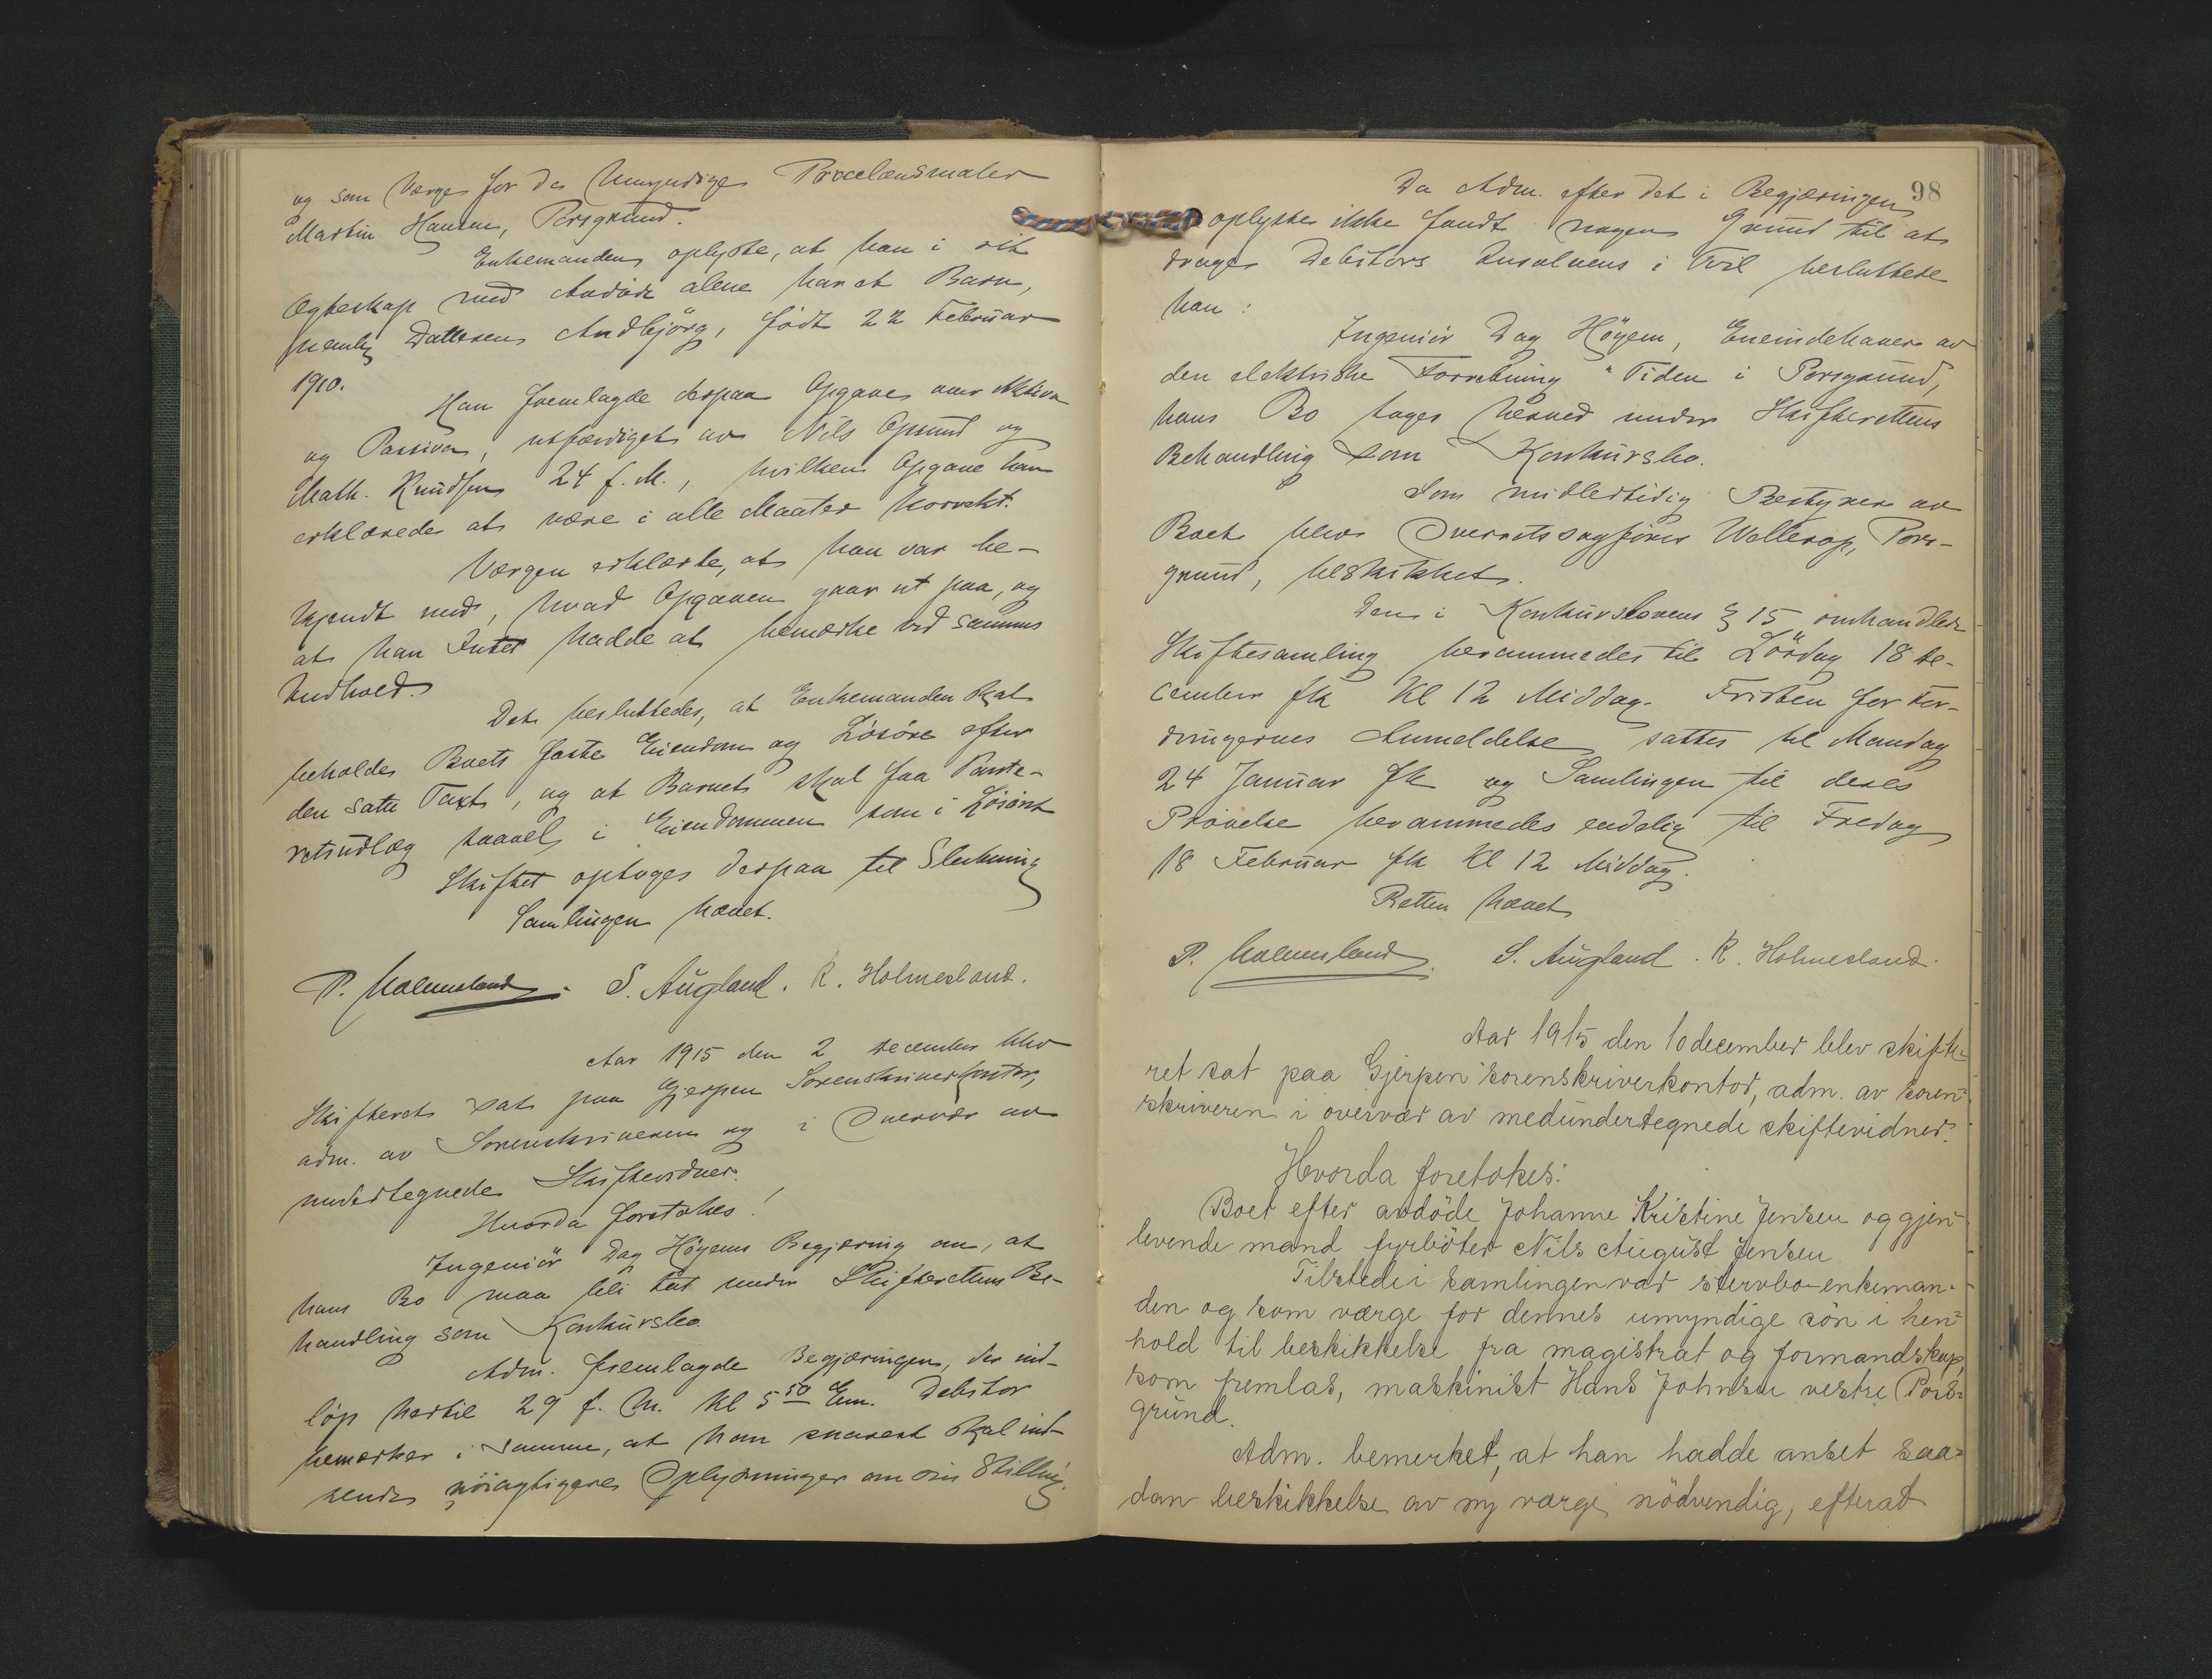 og som Værge for de Umyndige Porcelænsmaler
Martin Hansen, Porsgrund.
Enkemanden oplyste, at han i sit
Egteskap med Avdøde alene har et Barn,
nemlig Datteren Andbjørg, født 22 Februar
1910.
Han fremlagde derpaa Opgave over Aktiva
og Passiva, utfærdiget av Nils Opsund og
Math. Knudsen 24 f. M., hvilken Opgave han
erklærede at være i alle Maater korrekt.
Værgen erklærte, at han var be-
kjendt med, hvad Opgaven gaar ut paa, og
at han Intet hadde at bemærke ved sammes
Indhold.
Det besluttedes, at Enkemanden skal
beholde Boets faste Eiendom og Løsøre efter
den satte Taxt, og at Barnet skal faa Pante-
retsudlæg saavel i Eiendommen som i Løsøret
Skiftet optoges derpaa til Slutning
Samlingen hævet.
P. Holmesland. S. Augland. K. Holmesland.
Aar 1915 den 2 december blev
Skifteret sat paa Gjerpen Sorenskriverkontor,
adm. av Sorenskriveren og i Overvær av
undertegnede Skiftevidner.
Hvorda foretokes!
Ingeniør Dag Høyems Begjæring om, at
hans Bo maa bli tat under Skifterettens Be-
handling som Konkursbo.
Adm. fremlagde Begjæringen, der ind-
løp hertil 29 f. M. kl 5 50 Em. Debitor
bemærker i samme, at han snarest skal ind-
sende nøiagtigere Oplysninger om sin Stilling.
98
Da Adm. efter det i Begjæringen
oplyste ikke fandt nogen Grund til at
drage Debitors Insolvens i Tvil besluttede
han:
Ingeniør Dag Høyem, Eneindehaver av
den elektriske Forretning "Tiden i Porsgrund,
hans Bo tages herved under Skifterettens
Behandling som Konkursbo.
Som midlertidig Bestyrer av
Boet blev Overretssagfører Wallerop, Pors-
grund, beskikket.
Den i Konkurslovens § 15 omhandlede
Skiftesamling berammedes til Lørdag 18 de-
cember fk Kl 12 Middag. Fristen for For-
dringernes Anmeldelse sattes til Mandag
24 Januar fk og Samlingen til deres
Prøvelse berammedes endelig til Fredag
18 Februar fk Kl 12 Middag.
Retten hævet
P. Holmesland. S. Augland. K. Holmesland.
Aar 1915 den 10 december blev skifte-
ret sat paa Gjerpen sorenskriverkontor, adm. av soren-
skriveren i overvær av medundertegnede skiftevidner.
Hvorda foretokes:
Boet efter avdöde Johanne Kristine Jensen og gjen-
levende mand fyrböter Nils August Jensen
Tilstede i samlingen var stervbo-enkeman-
den og som værge for dennes umyndige sön i hen-
hold til beskikkelse fra magistrat og formandskap,
som fremlas, maskinist Hans Johnsen vestre Pors-
grund.
Adm. bemerket, at han hadde anset saa-
dan beskikkelse av ny værge nödvendig, efterat